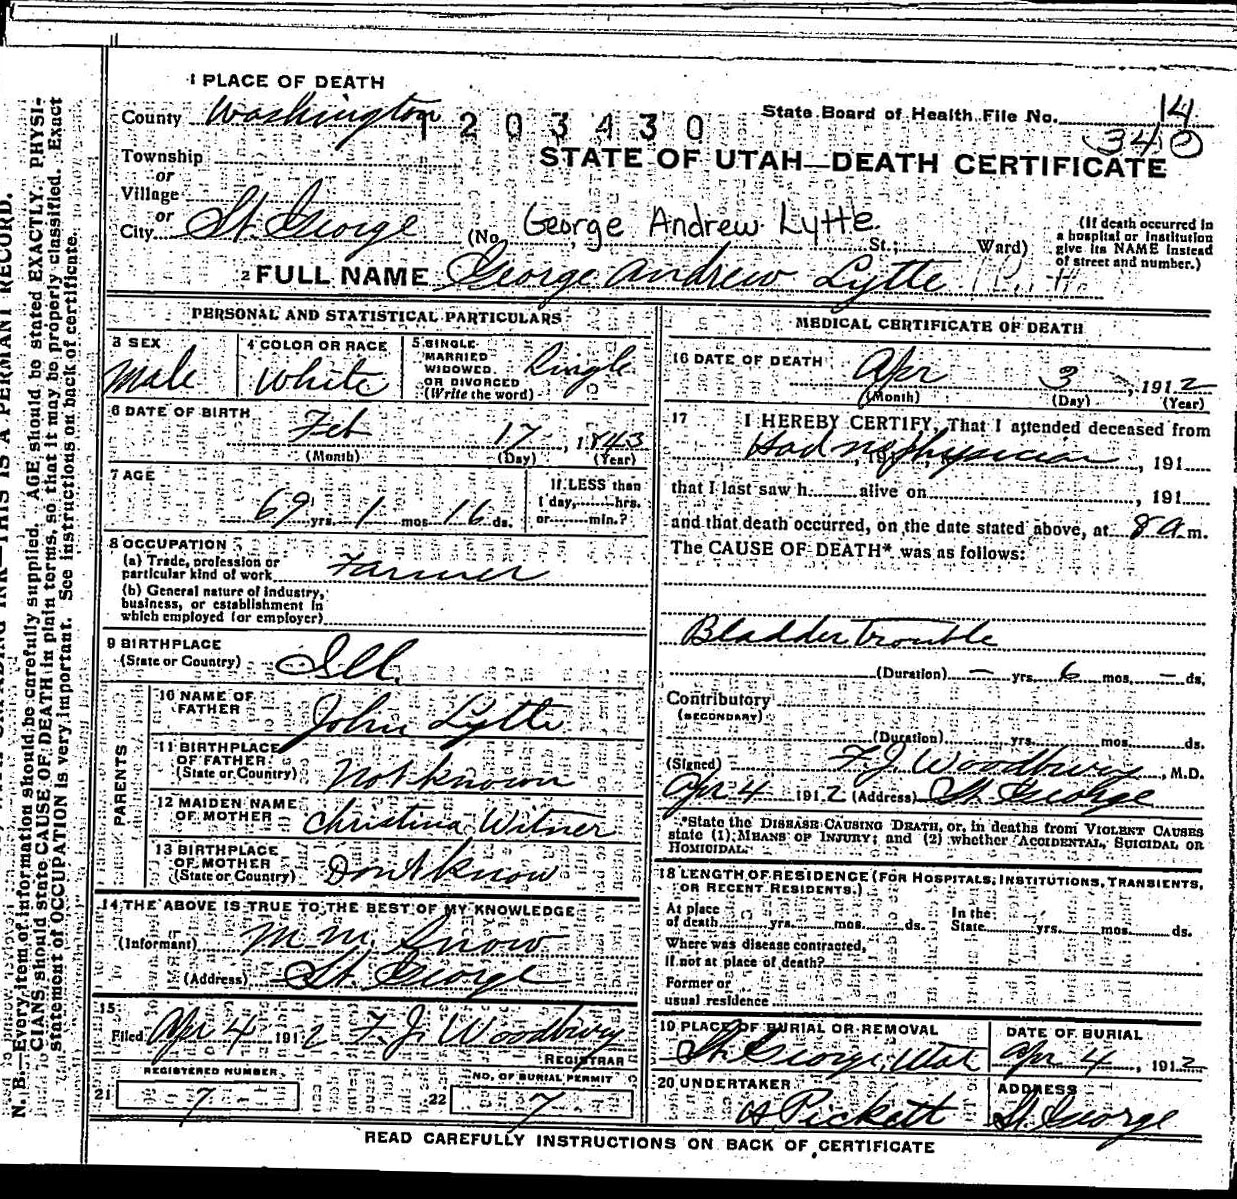 1 PLACE OF DEATH
County Washington
1203430
State Board of Health File No. 14
340
Township
or
Village
or
City St. George
STATE OF UTAH—DEATH CERTIFICATE
George Andrew Lytte
(No. St.; Ward)
(If death occurred in
a hospital or institution
give its NAME instead
of street and number.)
2 FULL NAME George Andrew Lytte
PERSONAL AND STATISTICAL PARTICULARS
3 SEX
Male
4 COLOR OR RACE
White
5 SINGLE
MARRIED
WIDOWED
OR DIVORCED
(Write the word)
Single
6 DATE OF BIRTH
Feb 17, 1843
(Month) (Day) (Year)
7 AGE
69 yrs. 1 mos. 16 ds.
If LESS than
1 day, hrs.
or min.?
8 OCCUPATION
(a) Trade, profession or
particular kind of work Farmer
(b) General nature of industry,
business, or establishment in
which employed (or employer)
9 BIRTHPLACE
(State or Country) Ill.
PARENTS
10 NAME OF
FATHER John Lytte
11 BIRTHPLACE
OF FATHER
(State or Country) Not known
12 MAIDEN NAME
OF MOTHER Christina Witner
13 BIRTHPLACE
OF MOTHER
(State or Country) Don't know
14 THE ABOVE IS TRUE TO THE BEST OF MY KNOWLEDGE
(Informant) M. M. Snow
(Address) St. George
15
Filed Apr 4 1912 F. J. Woodbury
REGISTRAR
REGISTERED NUMBER
21 7
NO. OF BURIAL PERMIT
22 7
MEDICAL CERTIFICATE OF DEATH
16 DATE OF DEATH
Apr 3, 1912
(Month) (Day) (Year)
17 I HEREBY CERTIFY, That I attended deceased from
Had no physician, 191
that I last saw h alive on , 191
and that death occurred, on the date stated above, at 8 a m.
The CAUSE OF DEATH* was as follows:
Bladder trouble
(Duration) — yrs. 6 mos. — ds.
Contributory
(SECONDARY)
(Duration) yrs. mos. ds.
(Signed) F. J. Woodbury, M.D.
Apr 4 1912 (Address) St. George
*State the DISEASE CAUSING DEATH, or, in deaths from VIOLENT CAUSES
state (1) MEANS OF INJURY; and (2) whether ACCIDENTAL, SUICIDAL OR
HOMICIDAL.
18 LENGTH OF RESIDENCE (FOR HOSPITALS, INSTITUTIONS, TRANSIENTS,
OR RECENT RESIDENTS.)
At place
of death yrs. mos. ds.
In the
State yrs. mos. ds.
Where was disease contracted,
if not at place of death?
Former or
usual residence
19 PLACE OF BURIAL OR REMOVAL
St. George, Utah
DATE OF BURIAL
Apr 4, 1912
20 UNDERTAKER
A Pickett
ADDRESS
St. George
READ CAREFULLY INSTRUCTIONS ON BACK OF CERTIFICATE
THIS IS A PERMANT RECORD.
N. B.—Every item of information should be carefully supplied. AGE should be stated EXACTLY. PHYSI-
CIANS should state CAUSE OF DEATH in plain terms, so that it may be properly classified. Exact
statement of OCCUPATION is very important. See instructions on back of certificate.